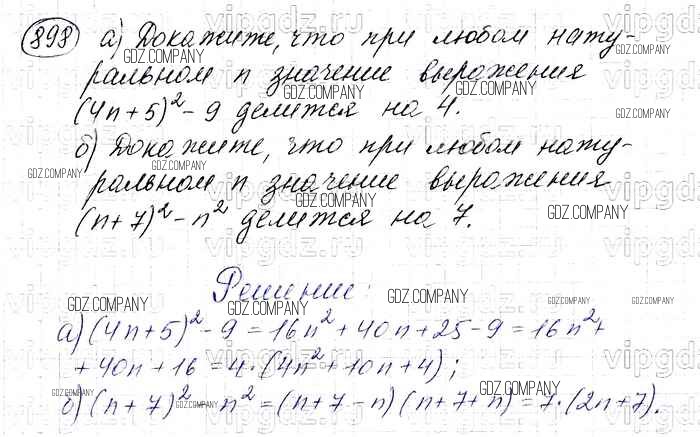 898 а) Докажите, что при любом нату-
ральном n значение выражения
(4n+5)² - 9 делится на 4.
б) Докажите, что при любом нату-
ральном n значение выражения
(n+7)² - n² делится на 7.
Решение:
а) (4n+5)² - 9 = 16n² + 40n + 25 - 9 = 16n² +
+ 40n + 16 = 4 · (4n² + 10n + 4);
б) (n+7)² - n² = (n+7-n)(n+7+n) = 7 · (2n+7).